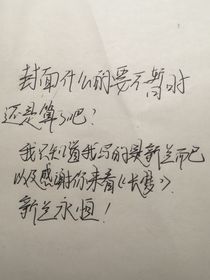 封面什么的要不暂时
还是算了吧？
我只知道我写的是新兰而已
以及感谢你来看《长度》.
新兰永恒！